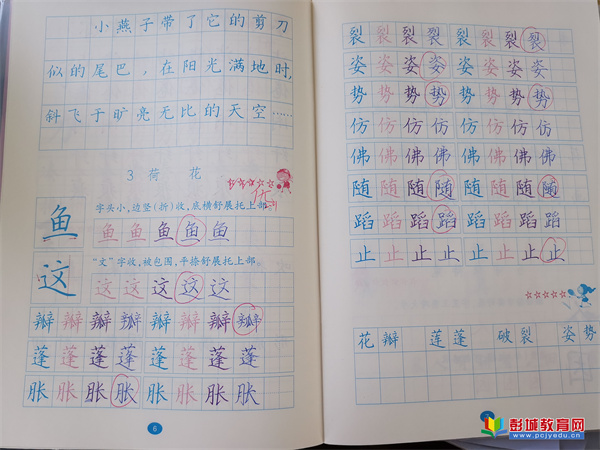 小燕子带了它的剪刀
似的尾巴，在阳光满地时，
斜飞于旷亮无比的天空……
3 荷 花
字头小，边竖（折）收，底横舒展托上部
鱼
鱼 鱼 鱼 鱼 鱼
“文”字收，被包围，平捺舒展托上部。
这
这 这 这 这 这
瓣 瓣 瓣 瓣 瓣 瓣 瓣 瓣
蓬 蓬 蓬 蓬 蓬 蓬 蓬 蓬
胀 胀 胀 胀 胀 胀 胀 胀
6
裂 裂 裂 裂 裂 裂 裂 裂
姿 姿 姿 姿 姿 姿 姿 姿
势 势 势 势 势 势 势 势
仿 仿 仿 仿 仿 仿 仿 仿
佛 佛 佛 佛 佛 佛 佛 佛
随 随 随 随 随 随 随 随
蹈 蹈 蹈 蹈 蹈 蹈 蹈 蹈
止 止 止 止 止 止 止 止
花瓣 莲蓬 破裂 姿势
彭城教育网
www.pcjyedu.cn